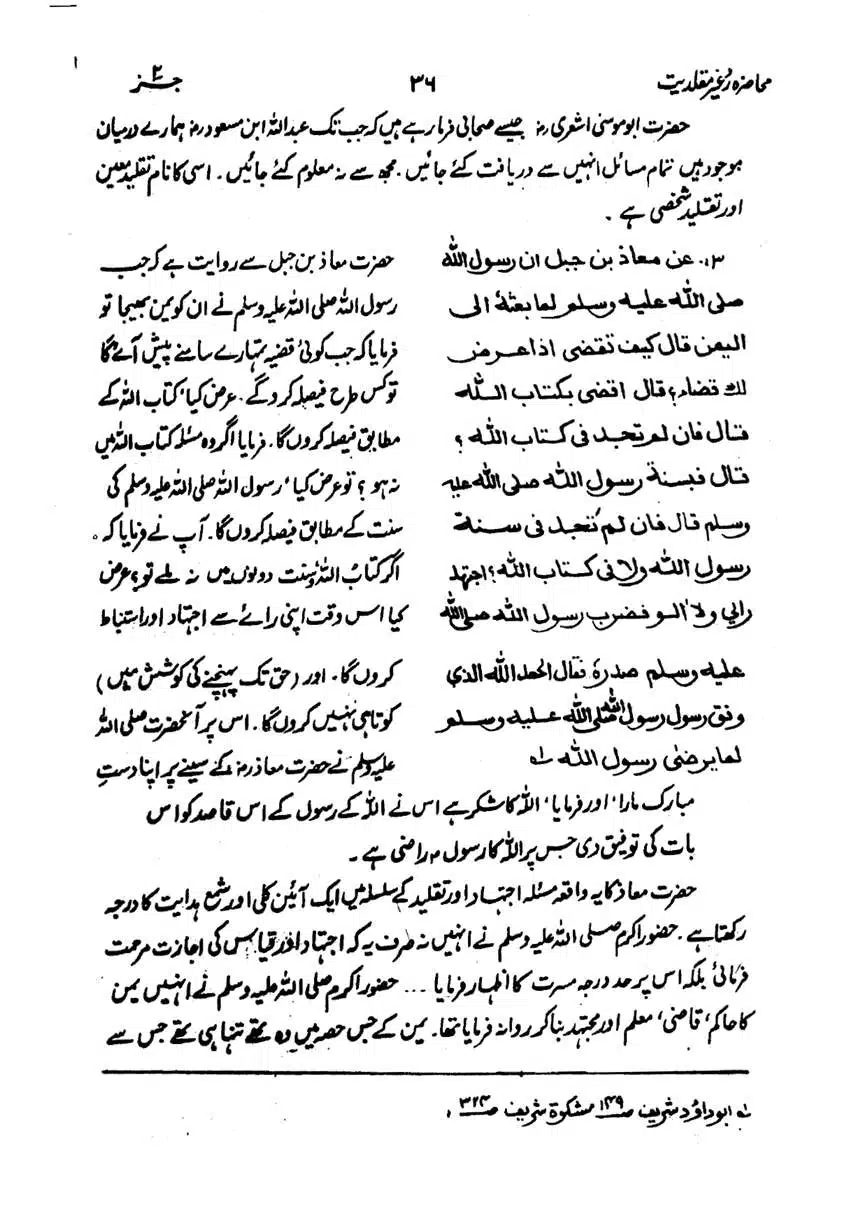 محاضرہ رد غیر مقلدیت ۳۶ جز ۲
حضرت ابو موسیٰ اشعری رض جیسے صحابی فرما رہے ہیں کہ جب تک عبداللہ ابن مسعود رض ہمارے درمیان
موجود ہیں تمام مسائل انہیں سے دریافت کئے جائیں۔ مجھ سے نہ معلوم کئے جائیں۔ اسی کا نام تقلید معین
اور تقلید شخصی ہے۔
۱۳۔ عن معاذ بن جبل ان رسول اللہ
صلی اللہ علیہ وسلم لما بعثہ الی
الیمن قال کیف تقضی اذا عرض
لك قضاء؟ قال اقضی بکتاب اللہ
قال فان لم تجد فی کتاب اللہ؟
قال فبسنة رسول اللہ صلی اللہ علیہ
وسلم قال فان لم تجد فی سنة
رسول اللہ ولا فی کتاب اللہ؟ اجتہد
رایی ولا آلو فضرب رسول اللہ صلی اللہ
علیہ وسلم صدرہ فقال الحمد للہ الذی
وفق رسول رسول اللہ صلی اللہ علیہ وسلم
لما یرضی رسول اللہ لہ
حضرت معاذ بن جبل سے روایت ہے کہ جب
رسول اللہ صلی اللہ علیہ وسلم نے ان کو یمن بھیجا تو
فرمایا کہ جب کوئی قضیہ تمہارے سامنے پیش آئے گا
تو کس طرح فیصلہ کرو گے۔ عرض کیا' کتاب اللہ کے
مطابق فیصلہ کروں گا۔ فرمایا اگر وہ مسئلہ کتاب اللہ میں
نہ ہو؟ تو عرض کیا' رسول اللہ صلی اللہ علیہ وسلم کی
سنت کے مطابق فیصلہ کروں گا۔ آپ نے فرمایا کہ
اگر کتاب اللہ و سنت دونوں میں نہ ملے تو؟ عرض
کیا اس وقت اپنی رائے سے اجتہاد اور استنباط
کروں گا۔ اور (حق تک پہنچنے کی کوشش میں)
کوتاہی نہیں کروں گا۔ اس پر آنحضرت صلی اللہ
علیہ وسلم نے حضرت معاذ رض کے سینے پر اپنا دستِ
مبارک مارا' اور فرمایا' اللہ کا شکر ہے اس نے اللہ کے رسول کے اس قاصد کو اس
بات کی توفیق دی جس پر اللہ کا رسول راضی ہے۔
حضرت معاذ کا یہ واقعہ مسئلہ اجتہاد اور تقلید کے سلسلہ میں ایک آئین کلی اور شمع ہدایت کا درجہ
رکھتا ہے۔ حضور اکرم صلی اللہ علیہ وسلم نے انہیں نہ صرف یہ کہ اجتہاد اور قیاس کی اجازت مرحمت
فرمائی بلکہ اس پر حد درجہ مسرت کا اظہار فرمایا ... حضور اکرم صلی اللہ علیہ وسلم نے انہیں یمن
کا حاکم' قاضی' معلم اور مجتہد بنا کر روانہ فرمایا تھا۔ یمن کے جس حصہ میں وہ تھے تنہا ہی تھے جس سے
لہ ابو داؤد شریف صـ۱۴۹ مشکوٰة شریف صـ۳۲۴